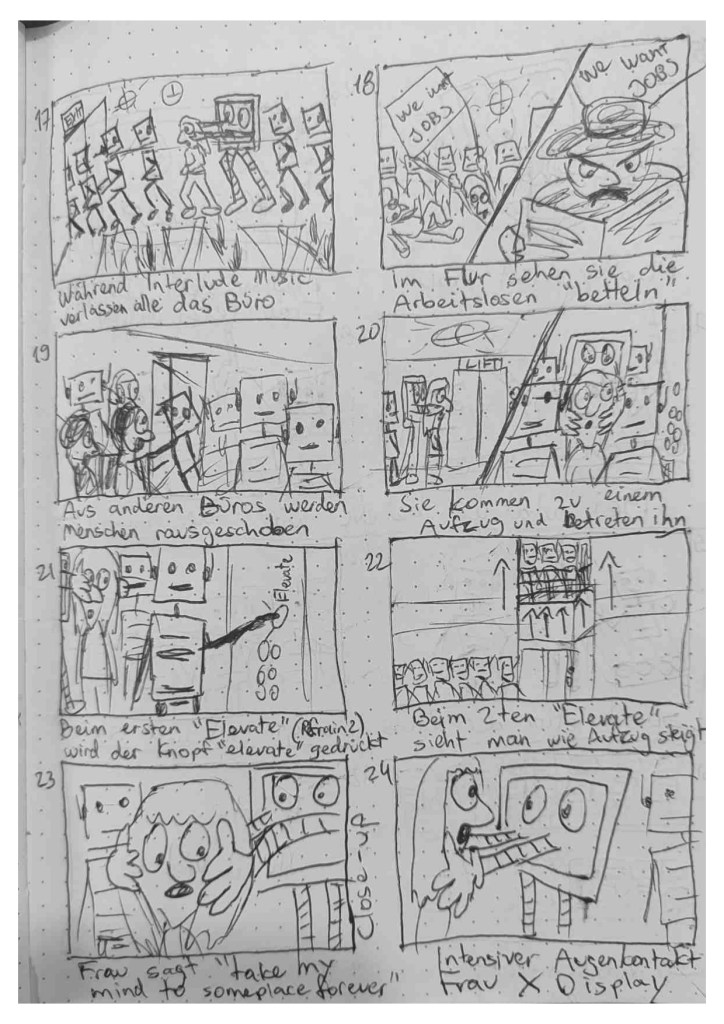 17
EXIT
Während Interlude Music
verlassen alle das Büro
18
We want
JOBS
We want
JOBS
Im Flur sehen sie die
Arbeitslosen "betteln"
19
Aus anderen Büros werden
Menschen rausgeschoben
20
LIFT
Sie kommen zu einem
Aufzug und betreten ihn
21
Elevate
Beim ersten "Elevate" (Refrain 2)
wird der Knopf "elevate" gedrückt
22
Beim 2ten "Elevate"
sieht man wie Aufzug steigt
23
Close-up
Frau sagt "take my
mind to someplace forever"
24
Intensiver Augenkontakt
Frau X Display